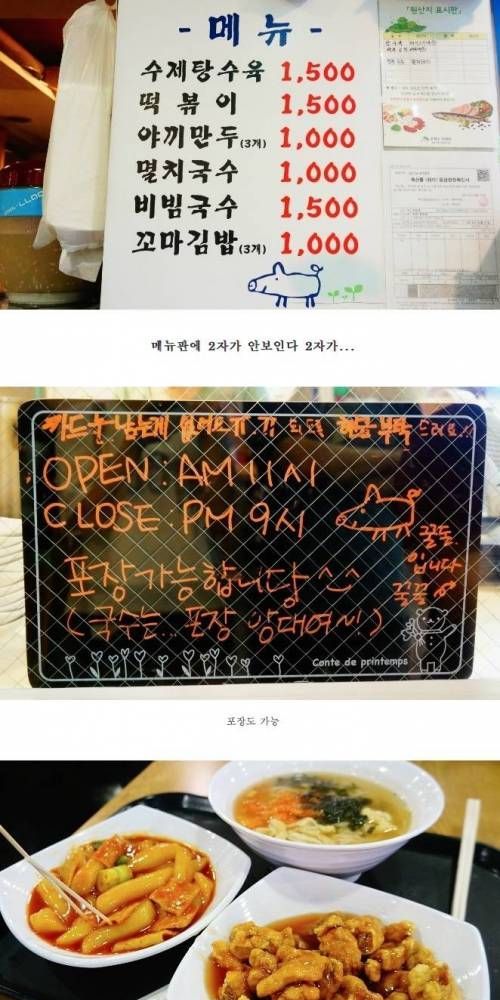 - 메 뉴 -
수제탕수육 1,500
떡 볶 이 1,500
야끼만두(3개) 1,000
멸치국수 1,000
비빔국수 1,500
꼬마김밥(3개) 1,000
원산지 표시판
메뉴판에 2자가 안보인다 2자가...
OPEN : AM 11시
CLOSE : PM 9시
포장가능합니당 ^^
(국수는... 포장 앙대여~!)
꿀돼
입니다
꿀꿀
Conte de printemps
포장도 가능